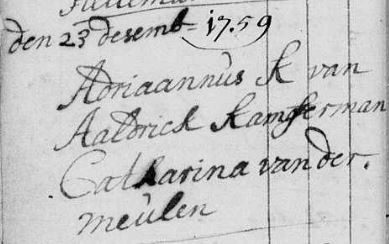 den 23 desemb= 17.59
Adriaannus K van
Aaldrick Kamferman
Catharina van der.
meulen